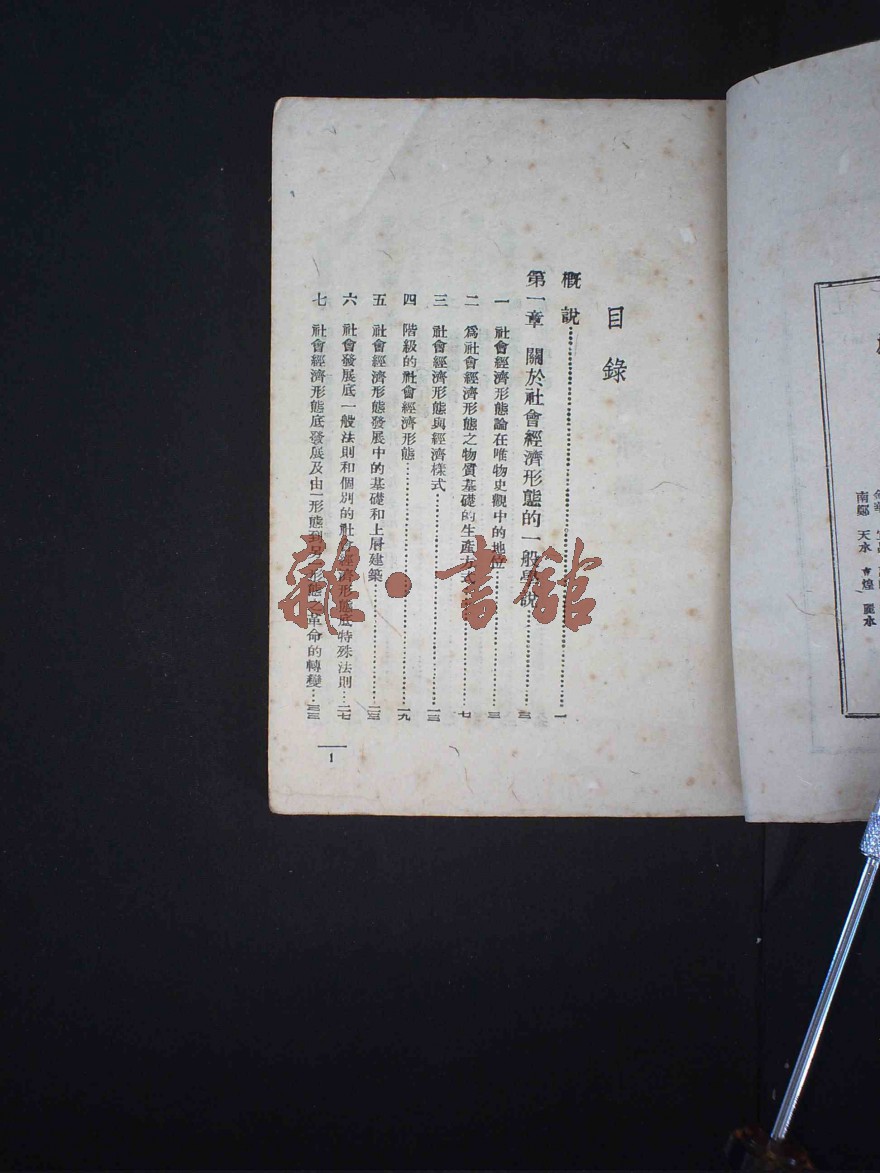 目錄
概說……一
第一章 關於社會經濟形態的一般學說……三
一 社會經濟形態論在唯物史觀中的地位……三
二 為社會經濟形態之物質基礎的生產方式……七
三 社會經濟形態與經濟樣式……一三
四 階級的社會經濟形態……一九
五 社會經濟形態發展中的基礎和上層建築……二三
六 社會發展底一般法則和個別的社會經濟形態底特殊法則……二七
七 社會經濟形態底發展及由一形態到另一形態之革命的轉變……三三
1
雜·書館
南鄭 天水 煌 麗水